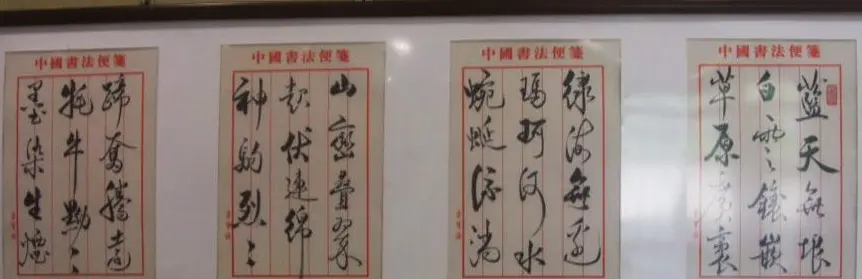 中國書法便箋
藍天無垠
白雲鑲嵌
草原廣袤
中國書法便箋
綠海無邊
瑪珂河水
蜿蜒流淌
中國書法便箋
山巒疊翠
起伏連綿
神駒烈々
中國書法便箋
蹄奮騰
牦牛黝々
墨染生煙